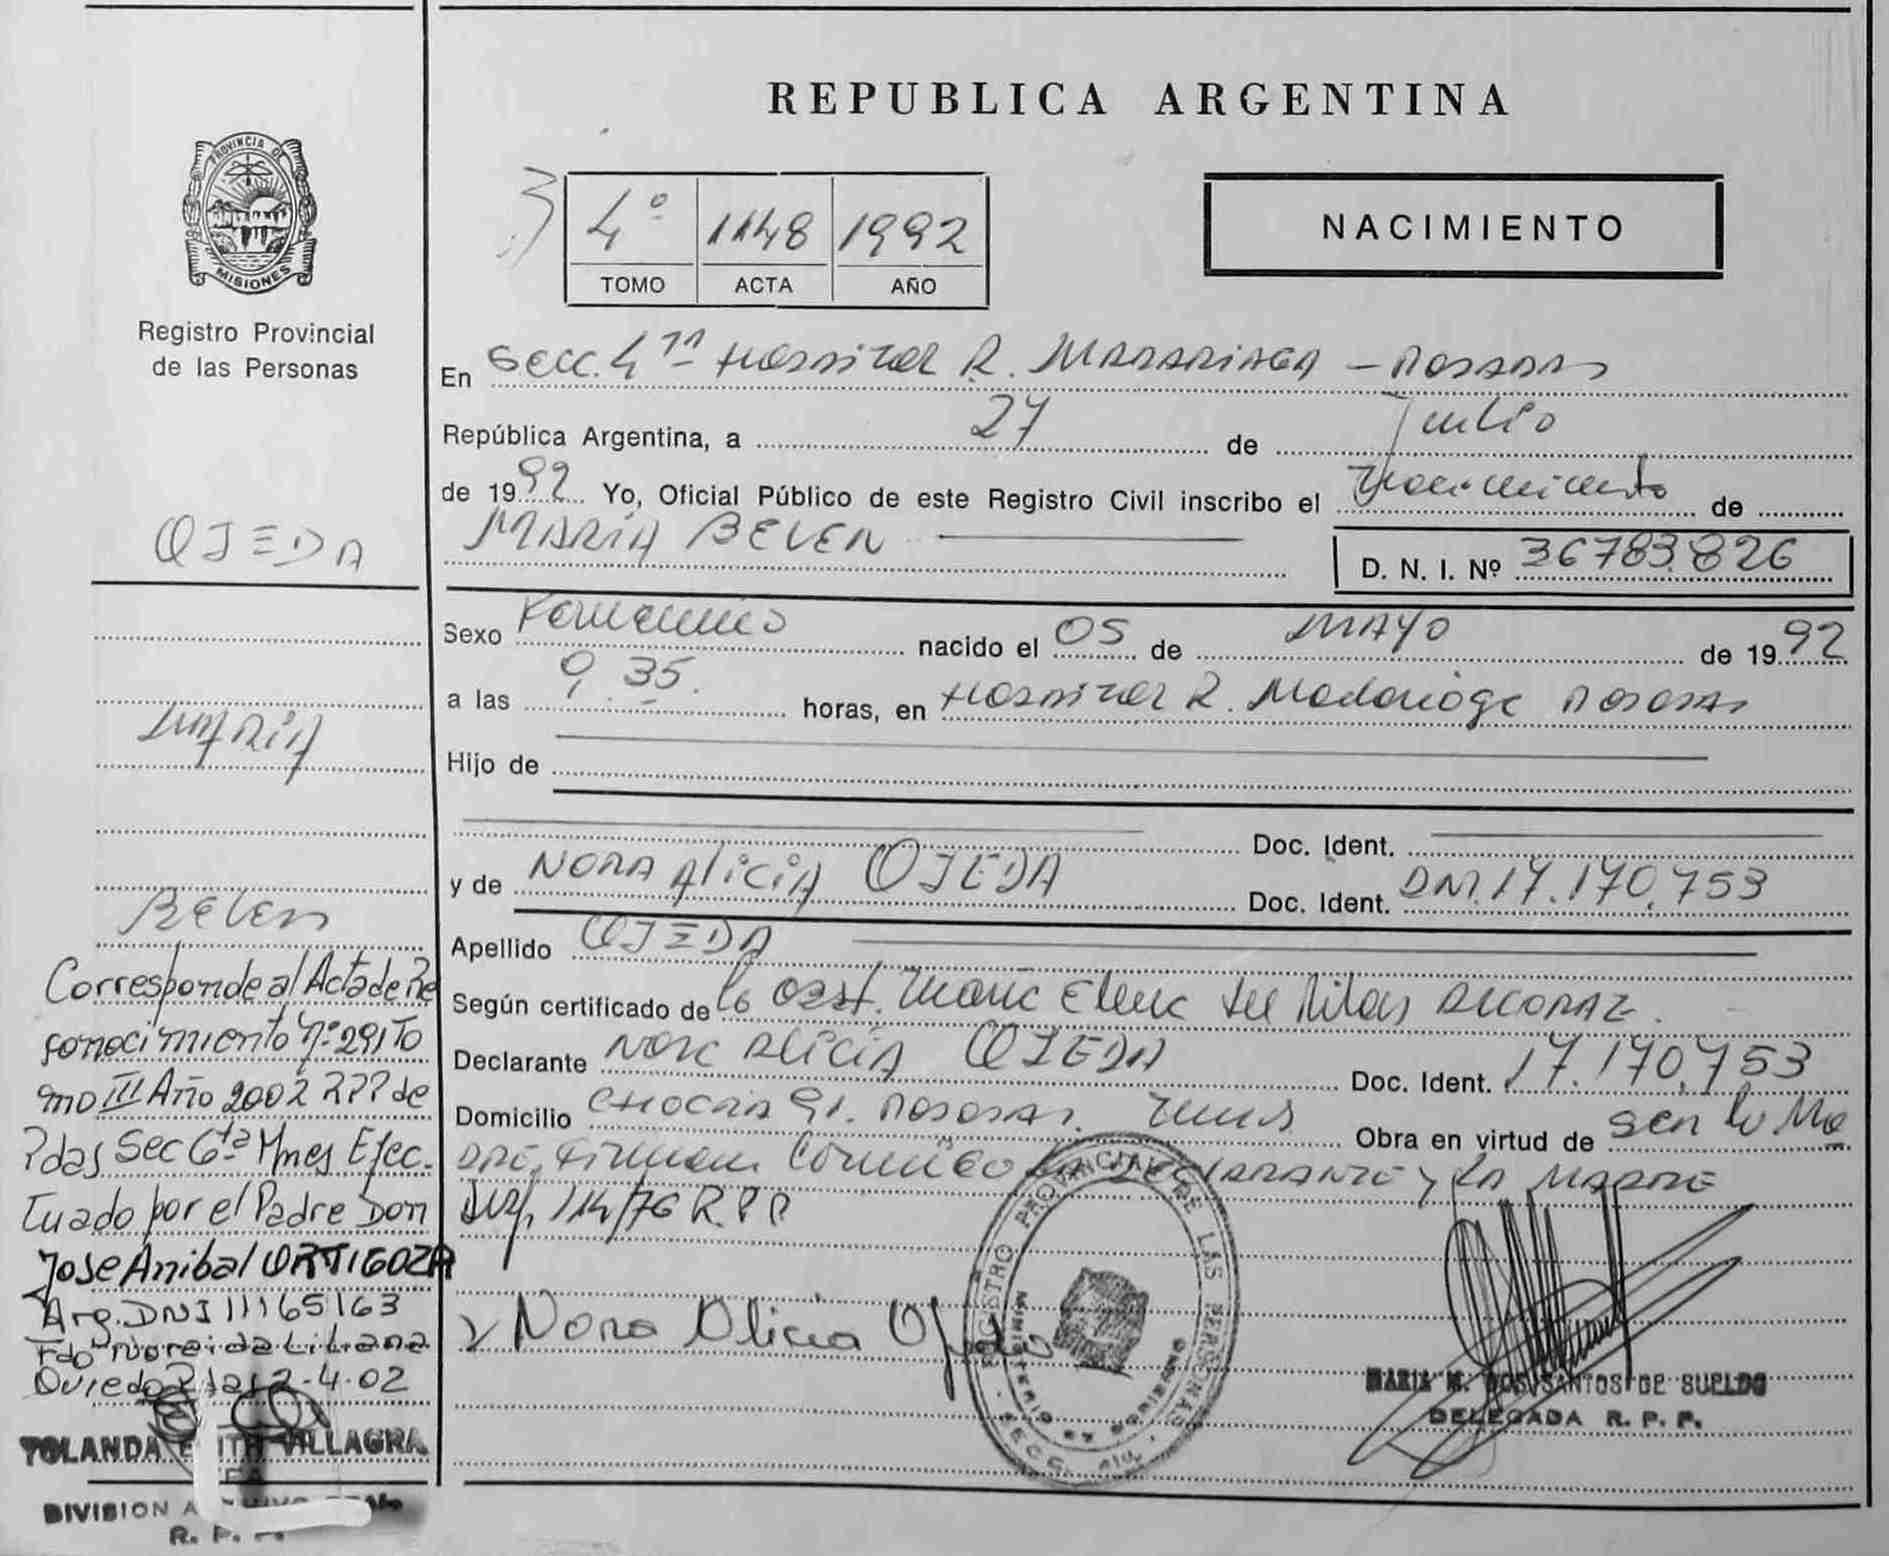 REPUBLICA ARGENTINA
PROVINCIA DE
MISIONES
Registro Provincial
de las Personas
4º 1148 1992
TOMO ACTA AÑO
NACIMIENTO
En Secc. 4ta Hospital R. MADARIAGA - POSADAS
República Argentina, a 27 de Julio
de 1992 Yo, Oficial Público de este Registro Civil inscribo el Nacimiento de
MARIA BELEN
D. N. I. Nº 36783.826
Sexo Femenino nacido el 05 de MAYO de 1992
a las 9,35. horas, en Hospital R. Madariaga Posadas
Hijo de
Doc. Ident.
y de NORA AliciA OJEDA Doc. Ident. DNI.17.170,753
Apellido OJEDA
Según certificado de la obst. Maria Elena
Declarante Nora Alicia OJEDA Doc. Ident. 17.170,753
Domicilio Posadas. Obra en virtud de Ser la Ma
dre, Firman Conmigo La DECLARANTE y LA MADRE
114/76 R.P.P
Nora Alicia Ojeda
REGISTRO PROVINCIAL DE LAS PERSONAS
MINISTERIO DE GOBIERNO
MARIA M. DOS SANTOS DE SUELDO
DELEGADA R. P. P.
OJEDA
MARIA
BELEN
Corresponde al Acta de Re
conocimiento Nº 291 To
mo III Año 2002 RPP de
Pdas Sec 6ta Mnes Efec-
tuado por el Padre Don
Jose Anibal ORTIGOZA
Arg. DNI 11165163
Fdo Noreida Liliana
Oviedo 2-4-02
YOLANDA EDITH VILLAGRA
DIVISION
R. P. P.